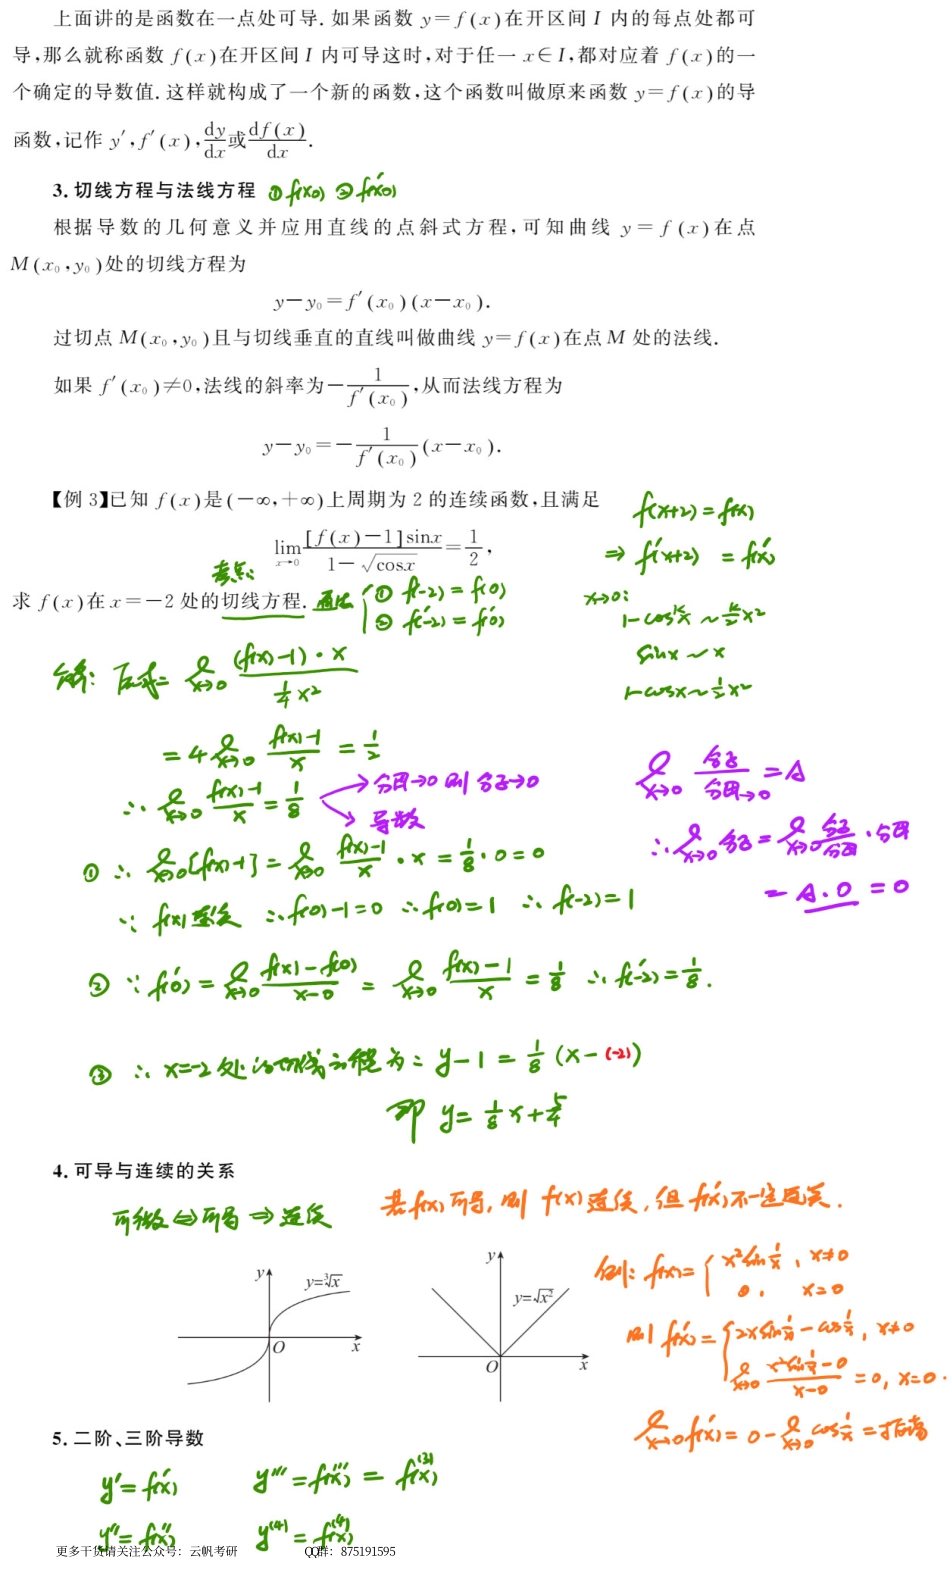 上面讲的是函数在一点处可导. 如果函数 y=f(x)在开区间 I 内的每点处都可
导,那么就称函数 f(x)在开区间 I 内可导这时,对于任一 x∈I,都对应着 f(x)的一
个确定的导数值. 这样就构成了一个新的函数,这个函数叫做原来函数 y=f(x)的导
函数,记作 y′,f′(x),dy/dx或df(x)/dx.
3. 切线方程与法线方程 ①f(x₀) ②f′(x₀)
根据导数的几何意义并应用直线的点斜式方程,可知曲线 y=f(x)在点
M(x₀,y₀)处的切线方程为
y−y₀=f′(x₀)(x−x₀).
过切点 M(x₀,y₀)且与切线垂直的直线叫做曲线 y=f(x)在点 M 处的法线.
如果 f′(x₀)≠0,法线的斜率为−1/f′(x₀),从而法线方程为
y−y₀=−1/f′(x₀)(x−x₀).
【例 3】已知 f(x)是(−∞,+∞)上周期为 2 的连续函数,且满足
f(x+2)=f(x)
lim x→0 [f(x)−1]sinx/(1−√cosx)=1/2,
⇒ f′(x+2)=f′(x)
求 f(x)在 x=−2 处的切线方程.
① f(-2)=f(0)
② f′(-2)=f′(0)
x→0:
1-cosᵏx ~ k/2 x²
sinx ~ x
1-cosx ~ 1/2 x²
解: 原式= lim x→0 (f(x)-1)·x / (1/4 x²)
= 4 lim x→0 (f(x)-1)/x = 1/2
∴ lim x→0 (f(x)-1)/x = 1/8
→ 分母→0 则 分子→0
→ 导数
lim x→0 分子/分母→0 = A
∴ lim x→0 分子 = lim x→0 分子/分母 · 分母
= A·0 = 0
① ∴ lim x→0 [f(x)-1] = lim x→0 (f(x)-1)/x · x = 1/8 · 0 = 0
∵ f(x)连续 ∴ f(0)-1=0 ∴ f(0)=1 ∴ f(-2)=1
② ∵ f′(0) = lim x→0 (f(x)-f(0))/(x-0) = lim x→0 (f(x)-1)/x = 1/8 ∴ f′(-2)=1/8.
③ ∴ x=-2 处的切线方程为: y-1 = 1/8 (x-(-2))
即 y= 1/8 x+ 5/4
4. 可导与连续的关系
可微⇔可导⇒连续
若f(x)可导, 则 f(x)连续, 但 f′(x)不一定连续.
例: f(x)= { x²sin 1/x, x≠0
0, x=0
则 f′(x)= { 2xsin 1/x - cos 1/x, x≠0
lim x→0 (x²sin 1/x - 0)/(x-0) = 0, x=0.
lim x→0 f′(x) = 0 - lim x→0 cos 1/x = 振荡
y
y=³√x
O
x
y
y=√x²
O
x
5. 二阶、三阶导数
y′=f′(x) y‴=f‴(x) = f⁽³⁾(x)
y″=f″(x) y⁽⁴⁾=f⁽⁴⁾(x)
更多干货请关注公众号：云帆考研 QQ群：875191595